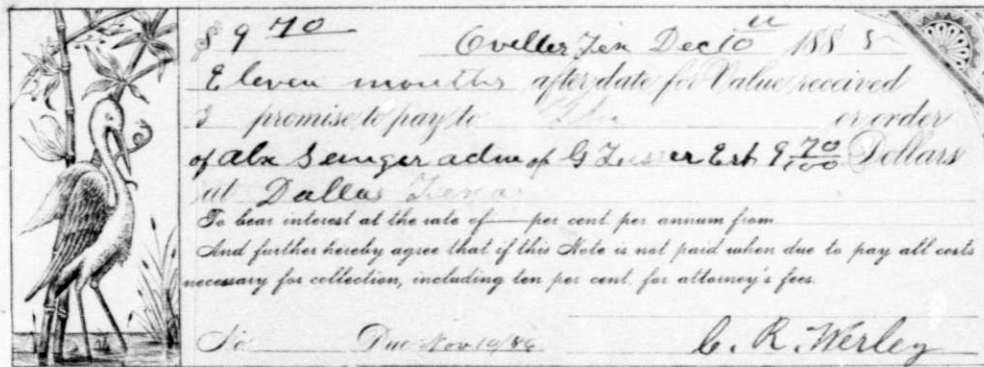 $ 9 70 Oviller Tex Dec 10th 1885
Eleven months after date for Value received
I promise to pay to the or order
of Alx Senger adm of G Est 9 70/100 Dollars
at Dallas Texas
To bear interest at the rate of — per cent per annum from
And further hereby agree that if this Note is not paid when due to pay all costs
necessary for collection, including ten per cent. for attorney's fees.
No Due Nov 10/86
C. R. Werley